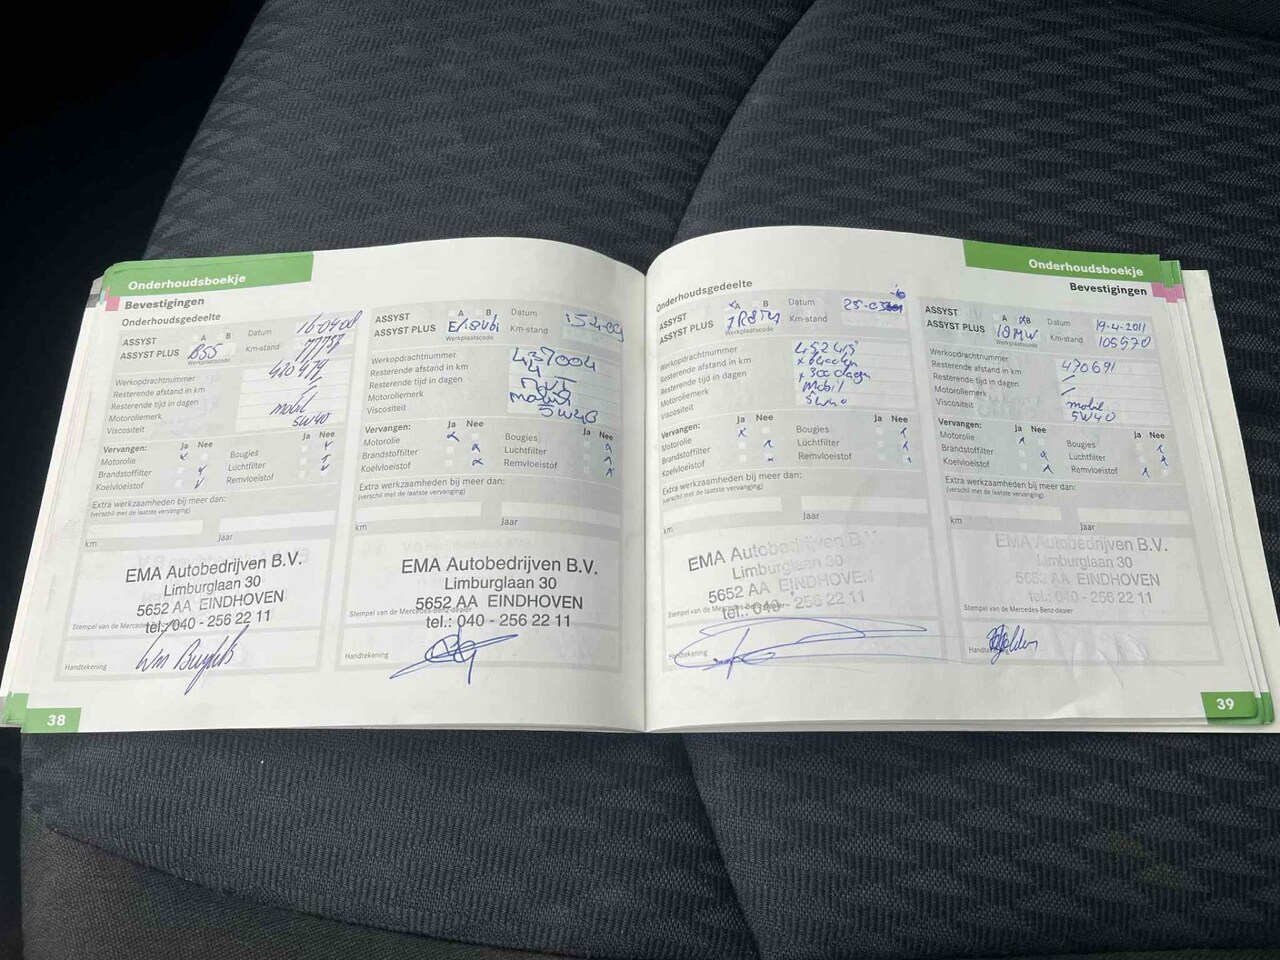 Onderhoudsboekje
Bevestigingen
Onderhoudsgedeelte
ASSYST A B
ASSYST PLUS
Werkplaatscode
Datum 16-04-08
Km-stand 77733
Werkopdrachtnummer
Resterende afstand in km
Resterende tijd in dagen
Motoroliemerk mobil
Viscositeit 5W40
Vervangen: Ja Nee Ja Nee
Motorolie Bougies
Brandstoffilter Luchtfilter
Koelvloeistof Remvloeistof
Extra werkzaamheden bij meer dan:
(verschil met de laatste vervanging)
km Jaar
EMA Autobedrijven B.V.
Limburglaan 30
5652 AA EINDHOVEN
Stempel van de Mercedes-Benz-dealer
tel.: 040 - 256 22 11
Handtekening
38
ASSYST A B
ASSYST PLUS
Werkplaatscode
Datum
Km-stand
Werkopdrachtnummer 437004
Resterende afstand in km
Resterende tijd in dagen
Motoroliemerk
Viscositeit 5W40
Vervangen: Ja Nee Ja Nee
Motorolie x Bougies
Brandstoffilter Luchtfilter
Koelvloeistof Remvloeistof
Extra werkzaamheden bij meer dan:
(verschil met de laatste vervanging)
km Jaar
EMA Autobedrijven B.V.
Limburglaan 30
5652 AA EINDHOVEN
Stempel van de Mercedes-Benz-dealer
tel.: 040 - 256 22 11
Handtekening
Onderhoudsgedeelte
ASSYST A B
ASSYST PLUS
Werkplaatscode
Datum
Km-stand
Werkopdrachtnummer
Resterende afstand in km
Resterende tijd in dagen x 300 dagen
Motoroliemerk Mobil
Viscositeit 5W40
Vervangen: Ja Nee Ja Nee
Motorolie x Bougies
Brandstoffilter Luchtfilter
Koelvloeistof Remvloeistof
Extra werkzaamheden bij meer dan:
(verschil met de laatste vervanging)
km Jaar
EMA Autobedrijven B.V.
Limburglaan 30
5652 AA EINDHOVEN
Stempel van de Mercedes-Benz-dealer
tel.: 040 - 256 22 11
Handtekening
Onderhoudsboekje
Bevestigingen
ASSYST A B
ASSYST PLUS
Werkplaatscode
Datum 19-4-2011
Km-stand 105570
Werkopdrachtnummer 470691
Resterende afstand in km
Resterende tijd in dagen
Motoroliemerk mobil
Viscositeit 5W40
Vervangen: Ja Nee Ja Nee
Motorolie Bougies
Brandstoffilter Luchtfilter
Koelvloeistof Remvloeistof
Extra werkzaamheden bij meer dan:
(verschil met de laatste vervanging)
km Jaar
EMA Autobedrijven B.V.
Limburglaan 30
5652 AA EINDHOVEN
Stempel van de Mercedes-Benz-dealer
tel.: 040 - 256 22 11
Handtekening
39